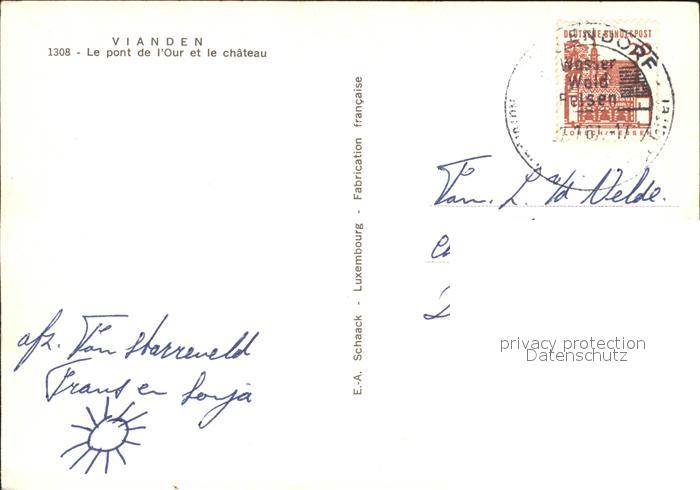 VIANDEN
1308 - Le pont de l'Our et le château
E.-A. Schaack - Luxembourg - Fabrication française
DEUTSCHE BUNDESPOST
ENDORF
Wasser
Wald
Felsen
LORSCH/HESSEN
Fam. L. v/d Velde.
privacy protection
Datenschutz
afz. Fam Starreveld
Frans en Sonja